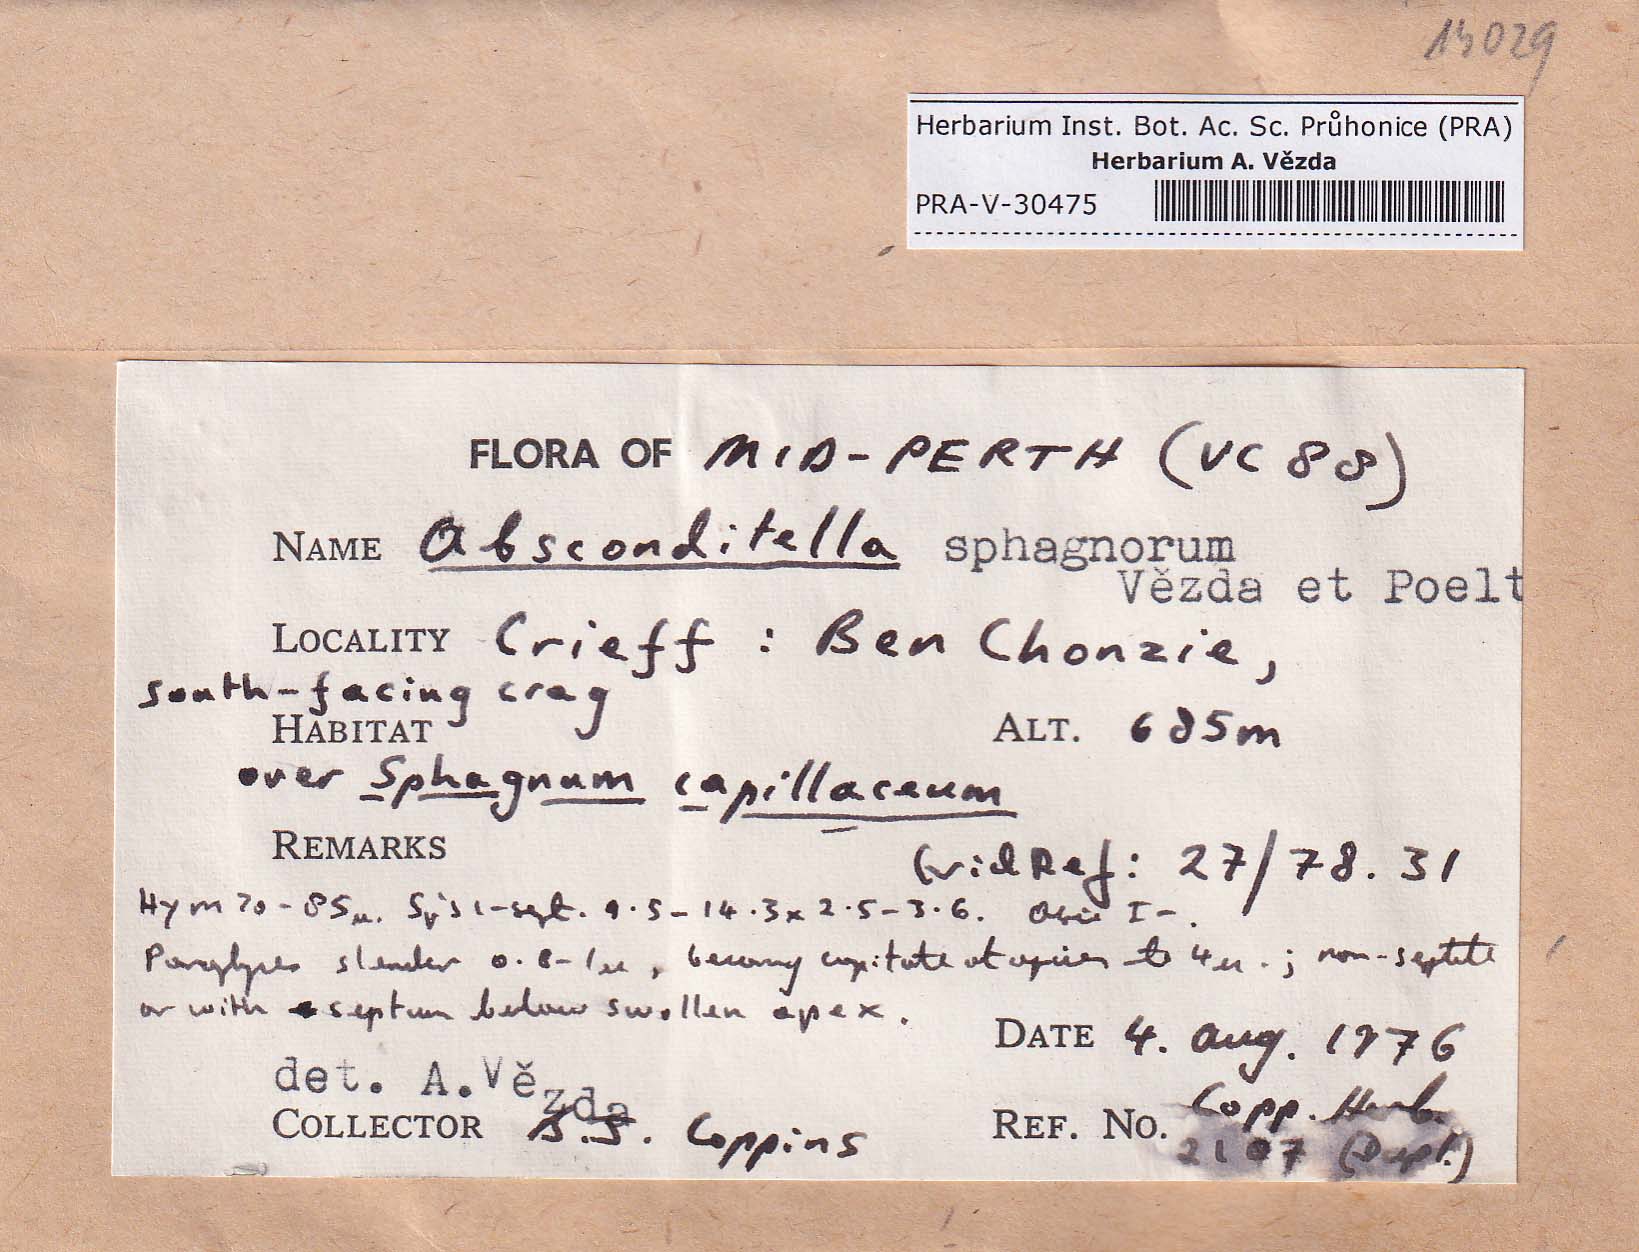 13029
Herbarium Inst. Bot. Ac. Sc. Průhonice (PRA)
Herbarium A. Vězda
PRA-V-30475
FLORA OF MID-PERTH (VC 88)
NAME Absconditella sphagnorum
Vězda et Poelt
LOCALITY Crieff : Ben Chonzie,
south-facing crag
HABITAT ALT. 685m
over Sphagnum capillaceum
REMARKS Grid Ref: 27/78.31
Hym 70-85µ. Sp's 1-sept. 9.5-14.3x2.5-3.6. I-.
Paraphyses slender 0.8-1µ, becoming capitate at apices to 4µ.; non-septate
or with septum below swollen apex.
DATE 4. Aug. 1976
det. A. Vězda
COLLECTOR B.J. Coppins REF. NO. Copp. Herb.
2107 (Dupl.)